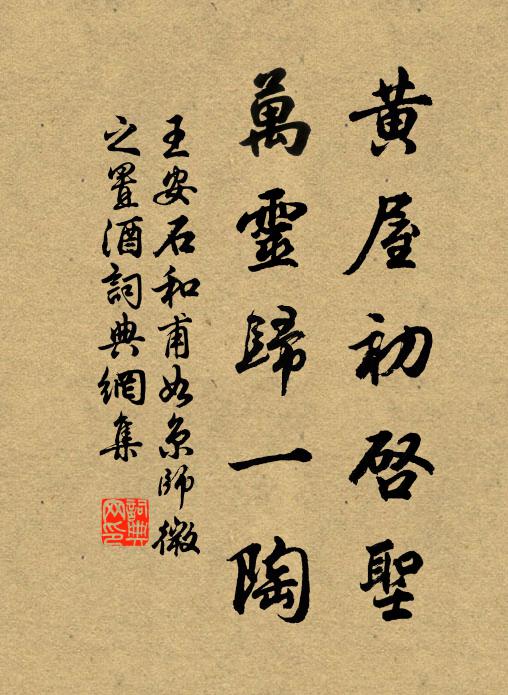 黃屋初啓聖
萬靈歸一陶
王安石和甫如京師微
之置酒詞典網集
詞典网印